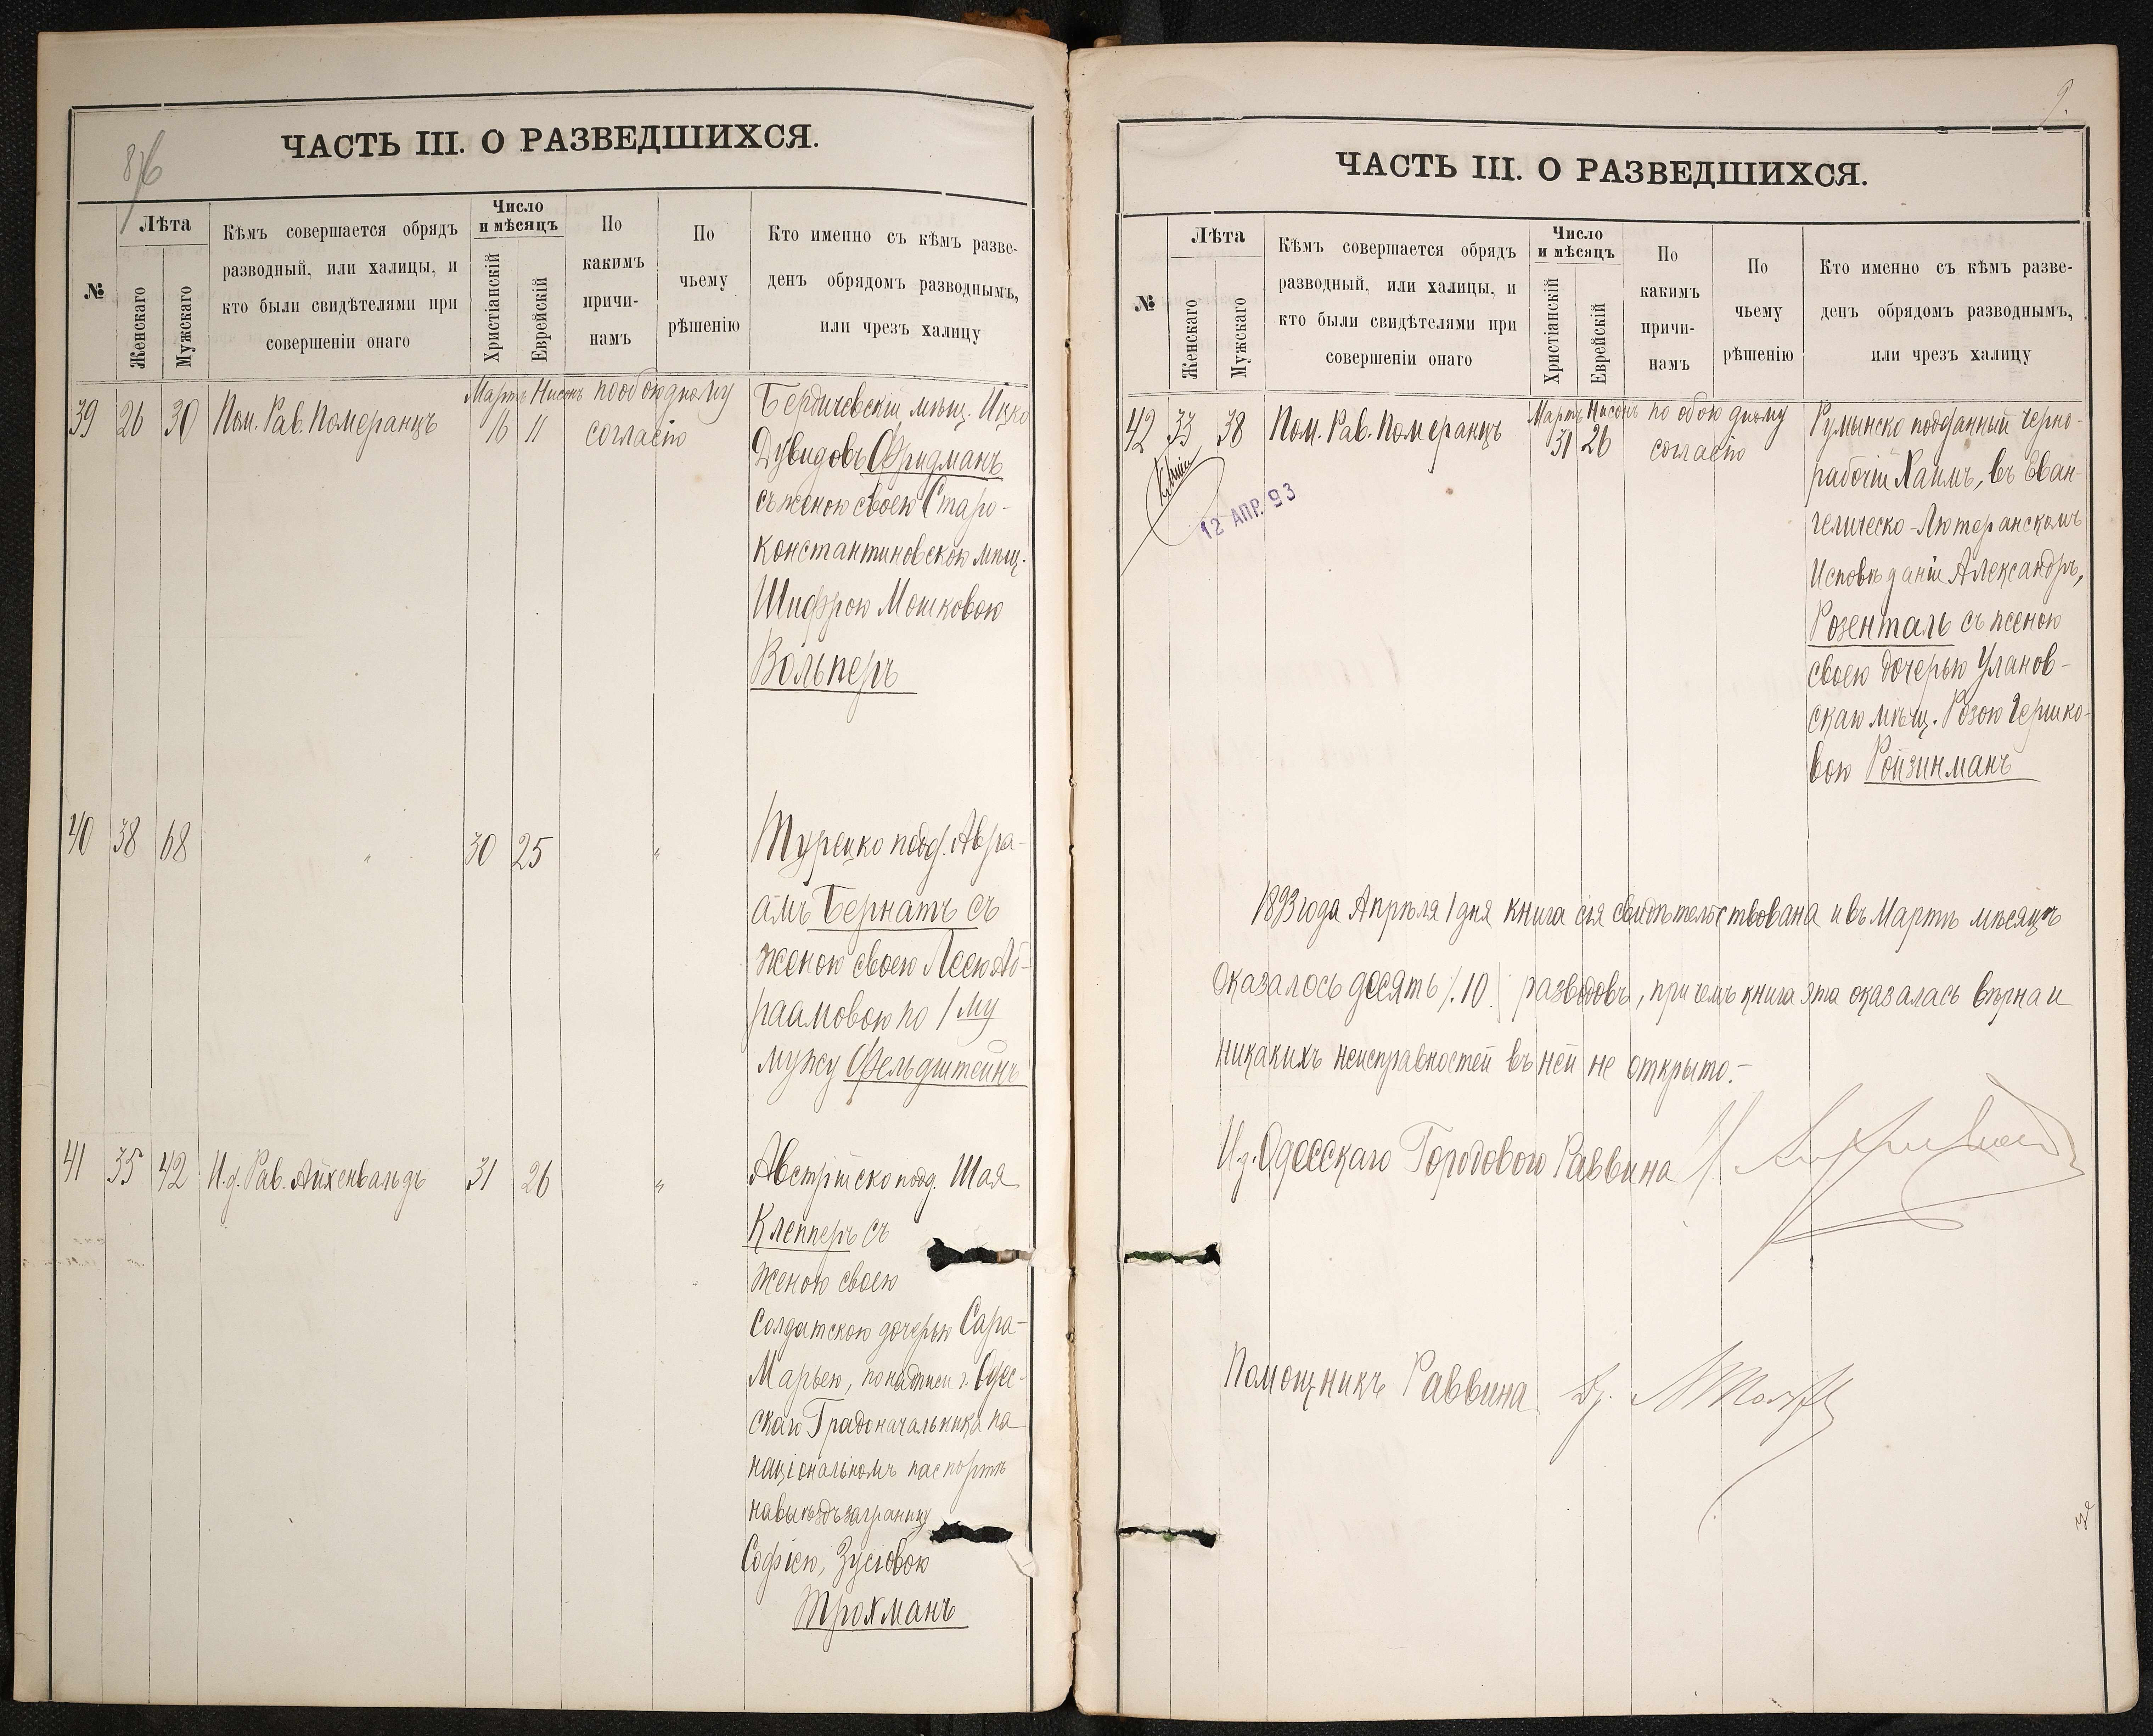 ЧАСТЬ III. О РАЗВЕДШИХСЯ.
№
Лѣта
Женскаго
Мужскаго
Кѣмъ совершается обрядъ
разводный, или халицы, и
кто были свидѣтелями при
совершеніи онаго
Число
и мѣсяцъ
Христіанскій
Еврейскій
По
какимъ
причи-
намъ
По
чьему
рѣшенію
Кто именно съ кѣмъ разве-
денъ обрядомъ разводнымъ,
или чрезъ халицу
39 26 30 Пом. Рав. Померанцъ
Мартъ Нисонъ
16 11
по обоюдному
согласію
Бердичевскій мѣщ. Ицко
Дувидовъ Фридманъ
съ женою своею Старо-
константиновскою мѣщ.
Шифрою Мошковою
Вольперъ
40 38 68 " 30 25 "
Турецко подд. Авра-
амъ Бернатъ съ
женою своею Леею Аб-
раамовою по 1му
мужу Фельдштейнъ
41 35 42 И.д. Рав. Айхенвальдъ 31 26 "
Австрійско подд. Шая
Клепперъ съ
женою своею
Солдатскою дочерью Сара-
Марьею, по надписи г. Одес-
скаго Градоначальника на
національномъ паспортѣ
на выѣздъ заграницу
Софіею, Зусіовою
Трохманъ
9.
ЧАСТЬ III. О РАЗВЕДШИХСЯ.
№
Лѣта
Женскаго
Мужскаго
Кѣмъ совершается обрядъ
разводный, или халицы, и
кто были свидѣтелями при
совершеніи онаго
Число
и мѣсяцъ
Христіанскій
Еврейскій
По
какимъ
причи-
намъ
По
чьему
рѣшенію
Кто именно съ кѣмъ разве-
денъ обрядомъ разводнымъ,
или чрезъ халицу
42 33 38 Пом. Рав. Померанцъ
Мартъ Нисонъ
31 26
по обоюдному
согласію
Румынско подданный черно-
рабочій Хаимъ, въ Еван-
гелическо-Лютеранскомъ
Исповѣданіи Александръ,
Розенталь съ женою
своею дочерью Уланов-
скаго мѣщ. Розою Гершко-
вою Ройзинманъ
12 АПР. 93
1893 года Апрѣля 1 дня книга сія свидѣтельствована и въ Мартѣ мѣсяцѣ
оказалось десять /.10./ разводовъ, при чемъ книга эта оказалась вѣрна и
никакихъ неисправностей въ ней не открыто.-
И.д. Одесскаго Городового Раввина
Помощникъ Раввина